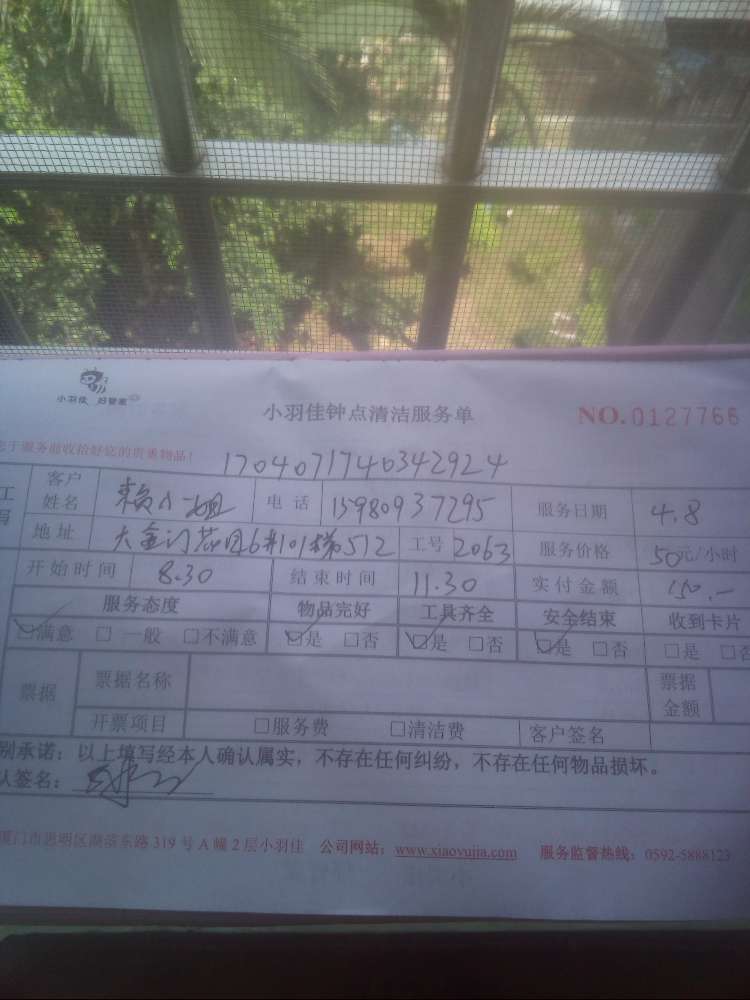 小羽佳 好管家
小羽佳钟点清洁服务单
NO.0127766
于服务前收拾好您的贵重物品!
1704071740342924
工 客户姓名 赖小姐 电话 15980937295 服务日期 4.8
地址 大金门花园6#101梯512 工号 2063 服务价格 50元/小时
开始时间 8.30 结束时间 11.30 实付金额 150.-
服务态度 物品完好 工具齐全 安全结束 收到卡片
☑满意 □一般 □不满意 ☑是 □否 ☑是 □否 ☑是 □否 □是 □否
票据 票据名称 票据金额
开票项目 □服务费 □清洁费 客户签名
别承诺:以上填写经本人确认属实,不存在任何纠纷,不存在任何物品损坏。
人签名:
厦门市思明区湖滨东路319号A幢2层小羽佳 公司网站:www.xiaoyujia.com 服务监督热线:0592-5888123